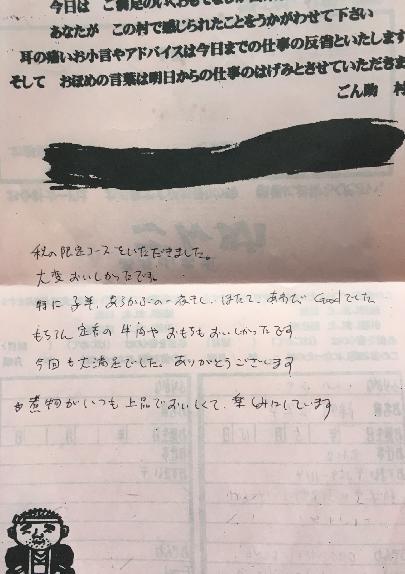 今日は ご満足のいくおもてなしが
あなたが この村で感じられたことをうかがわせて下さい
耳の痛いお小言やアドバイスは今日までの仕事の反省といたします
そして おほめの言葉は明日からの仕事のはげみとさせていただきま
ごん助 村
秋の限定コースをいただきました。
大変おいしかったです。
特に 子羊、あらかぶの一夜干し、ほたて、あわび Goodでした
もちろん 定番の 牛肉や おもちもおいしかったです
今回も大満足でした。ありがとうございます
煮物がいつも上品でおいしくて、楽しみにしています